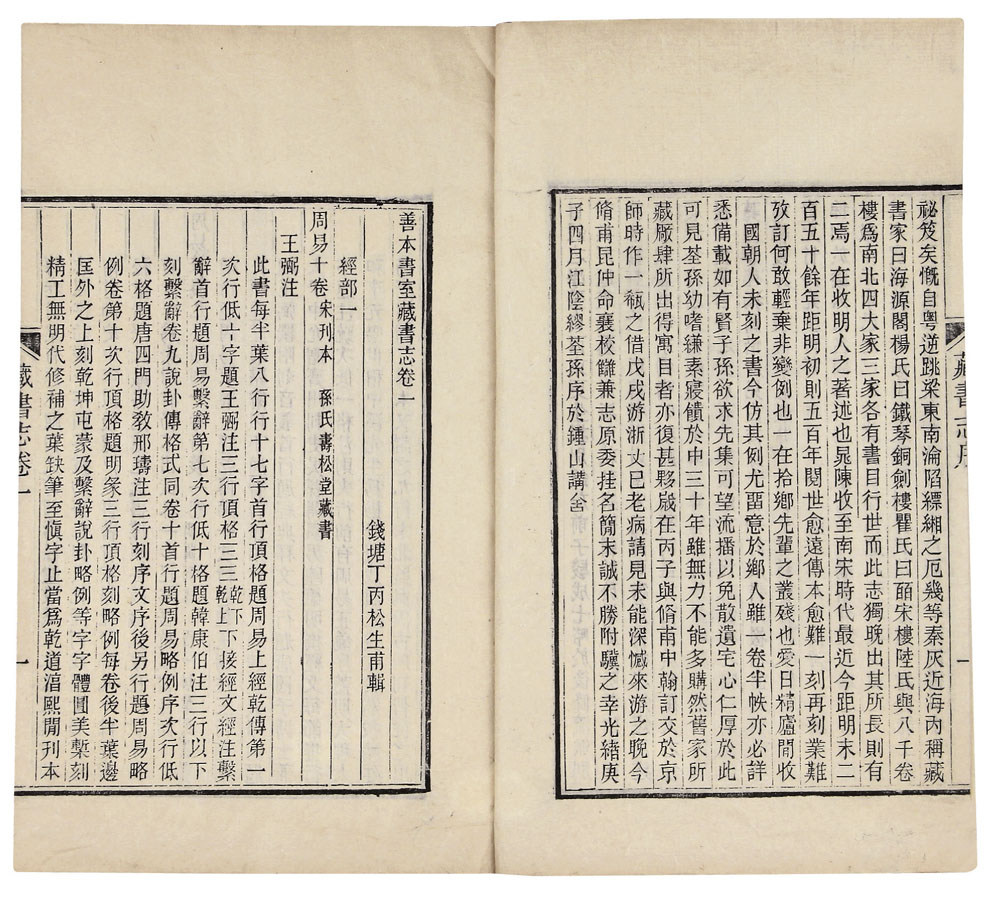 祕笈矣慨自粵逆跳梁東南淪陷縹緗之厄幾等秦灰近海內稱藏
書家曰海源閣楊氏曰鐵琴銅劍樓瞿氏曰皕宋樓陸氏與八千卷
樓爲南北四大家三家各有書目行世而此志獨晚出其所長則有
二焉一在收明人之著述也晁陳收至南宋時代最近今距明末二
百五十餘年距明初則五百年閱世愈遠傳本愈難一刻再刻業難
攷訂何敢輕棄非變例也一在拾鄉先輩之叢殘也愛日精廬閒收
國朝人未刻之書今仿其例尤畱意於鄉人雖一卷半帙亦必詳
悉備載如有賢子孫欲求先集可望流播以免散遺宅心仁厚於此
可見荃孫幼嗜縑素寢饋於中三十年雖無力不能多購然舊家所
藏厰肆所出得寓目者亦復甚夥歲在丙子與脩甫中翰訂交於京
師時作一瓻之借戊戌游浙丈已老病請見未能深憾來游之晚今
脩甫昆仲命襄校讎兼志原委挂名簡末誠不勝附驥之幸光緒庚
子四月江陰繆荃孫序於鍾山講舍
藏書志序
一
善本書室藏書志卷一
錢塘丁丙松生甫輯
經部一
周易十卷 宋刊本 孫氏壽松堂藏書
王弼注
此書每半葉八行行十七字首行頂格題周易上經乾傳第一
次行低十字題王弼注三行頂格三三乾下乾上下接經文經注繫
辭首行題周易繫辭第七次行低十格題韓康伯注三行以下
刻繫辭卷九說卦傳格式同卷十首行題周易略例序次行低
六格題唐四門助敎邢璹注三行刻序文序後另行題周易略
例卷第十次行頂格題明彖三行頂格刻略例每卷後半葉邊
匡外之上刻乾坤屯蒙及繫辭說卦略例等字字體圓美槧刻
精工無明代修補之葉缺筆至愼字止當爲乾道淳熙閒刊本
藏書志卷一
一